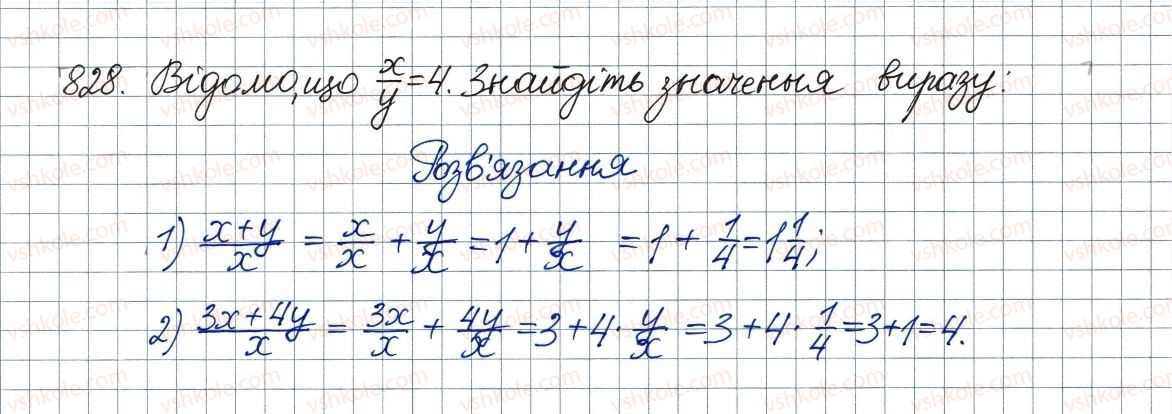 828. Відомо, що x/y = 4. Знайдіть значення виразу:
Розв'язання
1) (x+y)/x = x/x + y/x = 1 + y/x = 1 + 1/4 = 1 1/4;
2) (3x+4y)/x = 3x/x + 4y/x = 3 + 4 · y/x = 3 + 4 · 1/4 = 3 + 1 = 4.